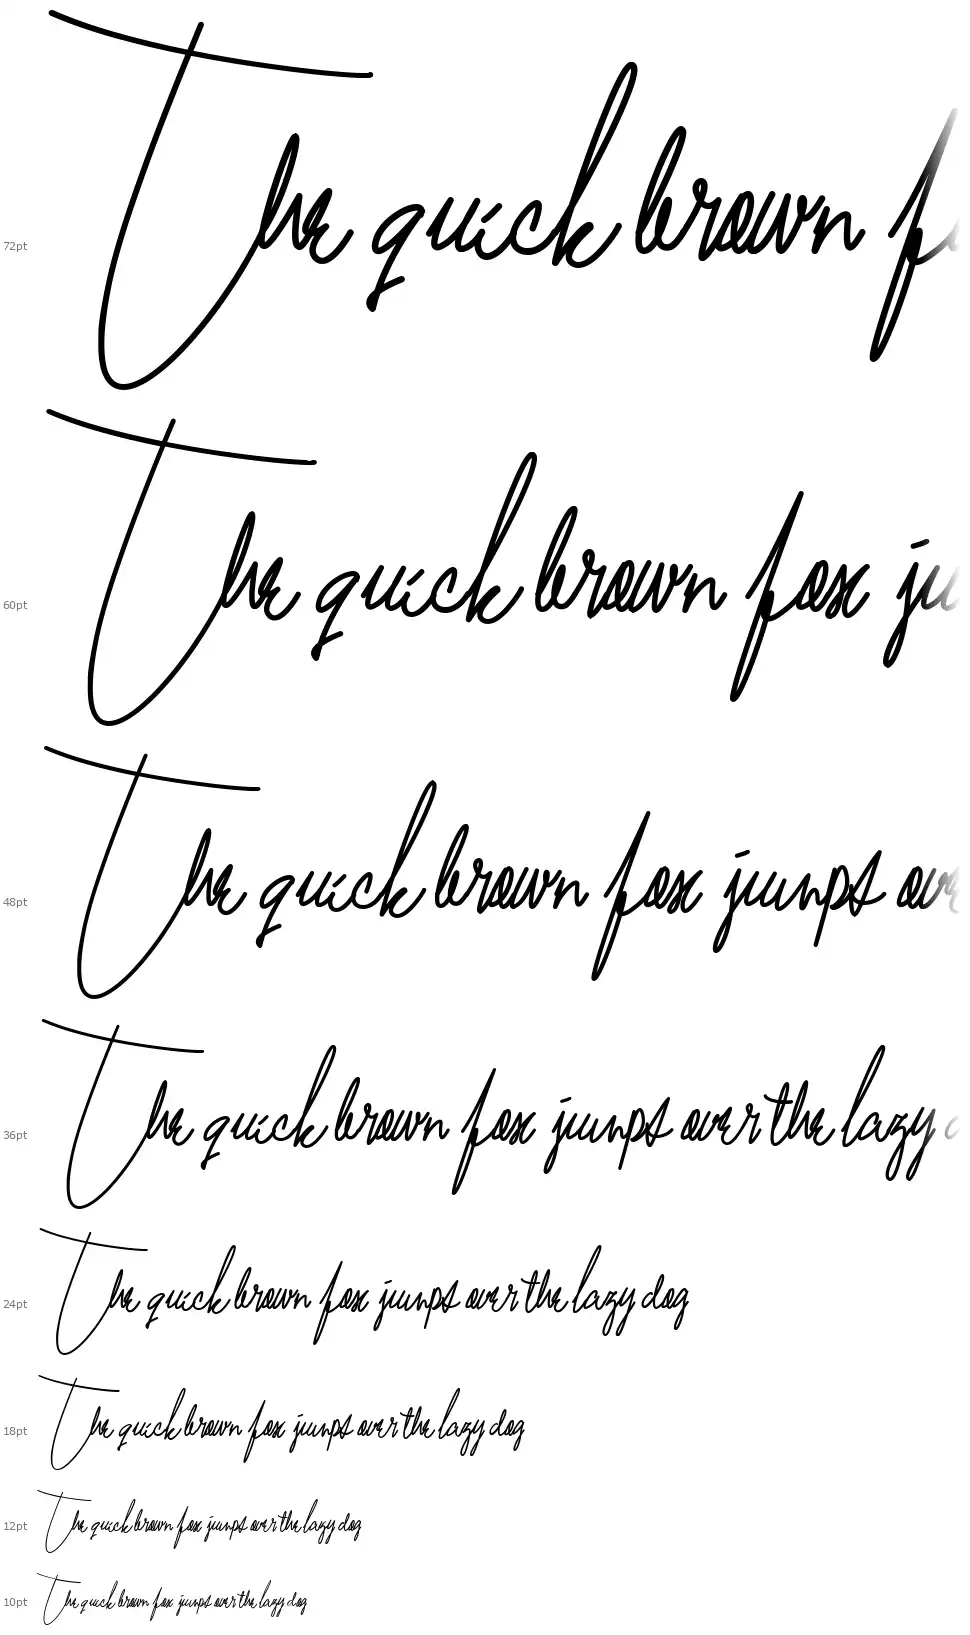 72pt The quick brown f
60pt The quick brown fox ju
48pt The quick brown fox jumps ove
36pt The quick brown fox jumps over the lazy d
24pt The quick brown fox jumps over the lazy dog
18pt The quick brown fox jumps over the lazy dog
12pt The quick brown fox jumps over the lazy dog
10pt The quick brown fox jumps over the lazy dog